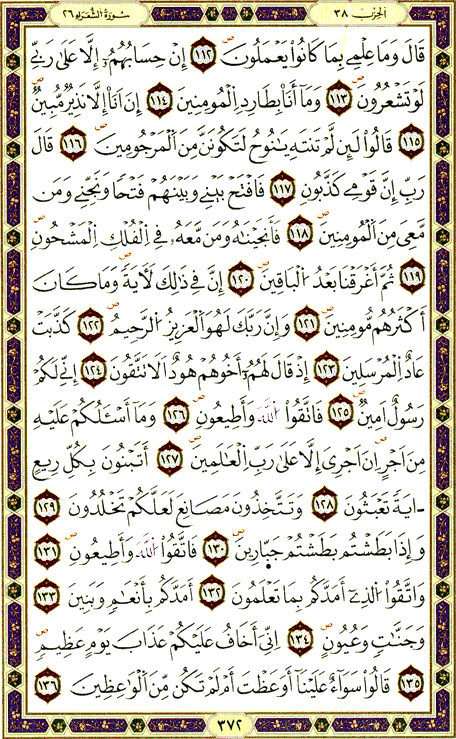 سُورَةُ الشُّعَرَاءِ ٢٦
الحِزْبُ ٣٨
قَالَ وَمَا عِلْمِے بِمَا كَانُواْ يَعْمَلُونَ ١١٢ إِنْ حِسَابُهُمُۥٓ إِلَّا عَلَىٰ رَبِّے
لَوْ تَشْعُرُونَ ١١٣ وَمَآ أَنَا۠ بِطَارِدِ اِ۬لْمُومِنِينَ ١١٤ إِنَ اَنَا۠ إِلَّا نَذِيرٞ مُّبِينٞ
١١٥ قَالُواْ لَئِن لَّمْ تَنتَهِ يَٰنُوحُ لَتَكُونَنَّ مِنَ اَ۬لْمَرْجُومِينَ ١١٦ قَالَ
رَبِّ إِنَّ قَوْمِے كَذَّبُونِ ١١٧ فَافْتَحْ بَيْنِے وَبَيْنَهُمْ فَتْحاٗ وَنَجِّنِے وَمَن
مَّعِے مِنَ اَ۬لْمُومِنِينَ ١١٨ فَأَنجَيْنَٰهُ وَمَن مَّعَهُۥ فِے اِ۬لْفُلْكِ اِ۬لْمَشْحُونِ
١١٩ ثُمَّ أَغْرَقْنَا بَعْدُ اُ۬لْبَاقِينَ ١٢٠ إِنَّ فِے ذَٰلِكَ لَأٓيَةٗ وَمَا كَانَ
أَكْثَرُهُم مُّومِنِينَ ١٢١ وَإِنَّ رَبَّكَ لَهُوَ اَ۬لْعَزِيزُ اُ۬لرَّحِيمُ ١٢٢ كَذَّبَتْ
عَادٌ اُ۬لْمُرْسَلِينَ ١٢٣ إِذْ قَالَ لَهُمُۥٓ أَخُوهُمْ هُودٌ اَلَا تَتَّقُونَ ١٢٤ إِنِّے لَكُمْ
رَسُولٌ اَمِينٞ ١٢٥ فَاتَّقُواْ اُ۬للَّهَ وَأَطِيعُونِ ١٢٦ وَمَآ أَسْـَٔلُكُمْ عَلَيْهِ
مِنَ اَجْرٍ اِنَ اَجْرِيَ إِلَّا عَلَىٰ رَبِّ اِ۬لْعَٰلَمِينَ ١٢٧ أَتَبْنُونَ بِكُلِّ رِيعٍ
ءَايَةٗ تَعْبَثُونَ ١٢٨ وَتَتَّخِذُونَ مَصَانِعَ لَعَلَّكُمْ تَخْلُدُونَ ١٢٩
وَإِذَا بَطَشْتُم بَطَشْتُمْ جَبَّارِينَ ١٣٠ فَاتَّقُواْ اُ۬للَّهَ وَأَطِيعُونِ ١٣١
وَاتَّقُواْ اُ۬لذِےٓ أَمَدَّكُم بِمَا تَعْلَمُونَ ١٣٢ أَمَدَّكُم بِأَنْعَٰمٖ وَبَنِينَ ١٣٣
وَجَنَّٰتٖ وَعُيُونٍ ١٣٤ اِنِّيَ أَخَافُ عَلَيْكُمْ عَذَابَ يَوْمٍ عَظِيمٖ
١٣٥ قَالُواْ سَوَآءٌ عَلَيْنَآ أَوَعَظْتَ أَمْ لَمْ تَكُن مِّنَ اَ۬لْوَٰعِظِينَ ١٣٦
٣٧٢